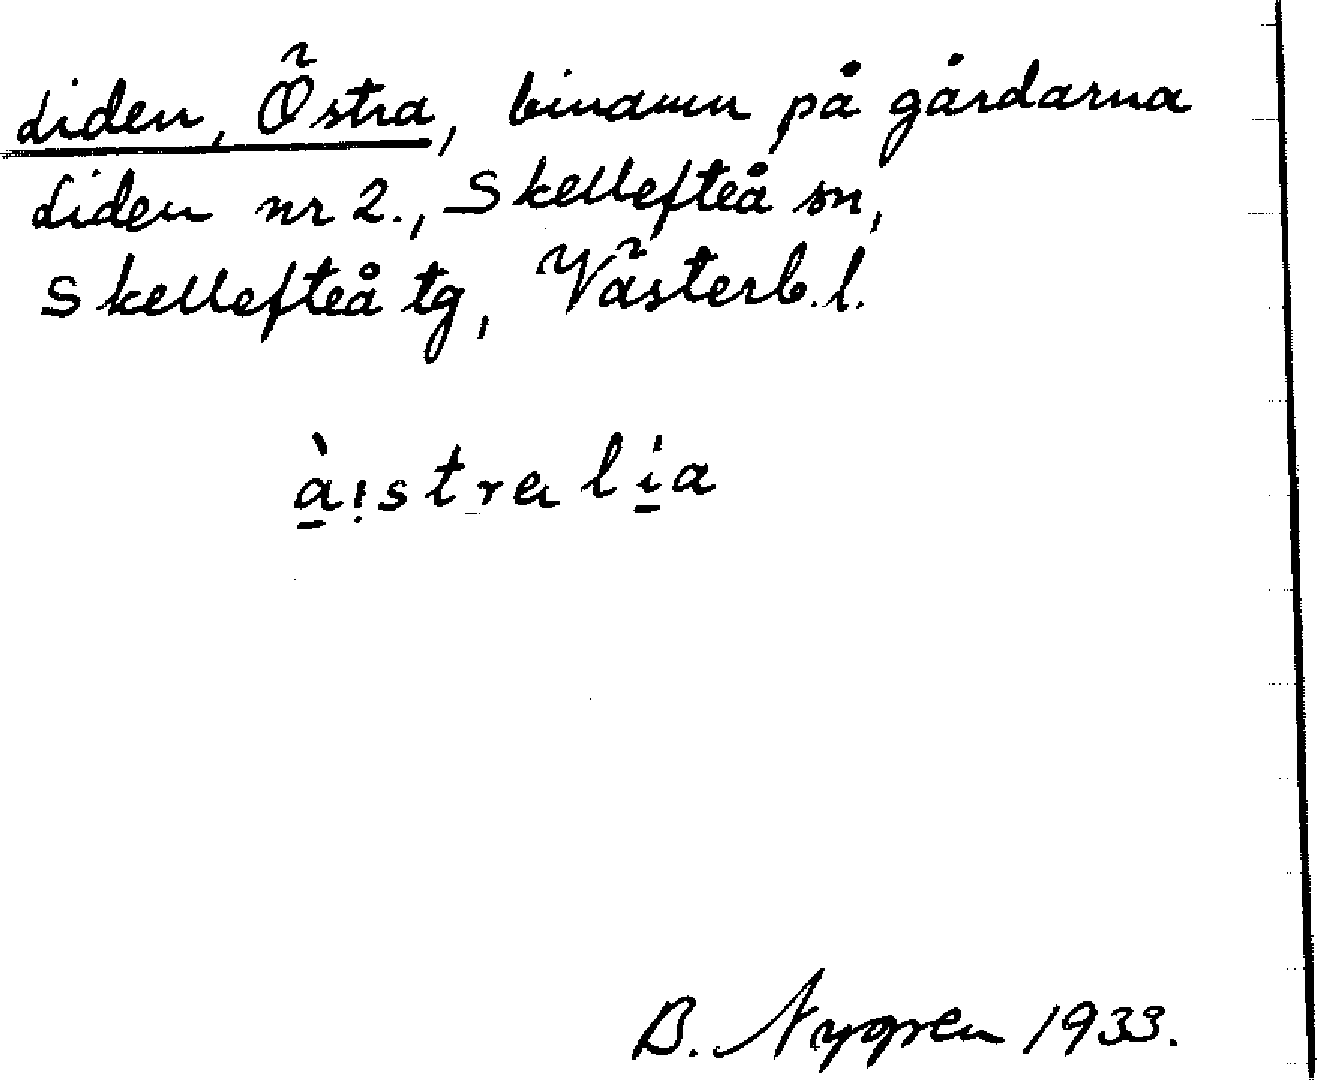 Liden, Östra, binamn på gårdarna
Liden nr 2., Skellefteå sn,
Skellefteå tg, Västerb.l.
B. Nygren 1933.